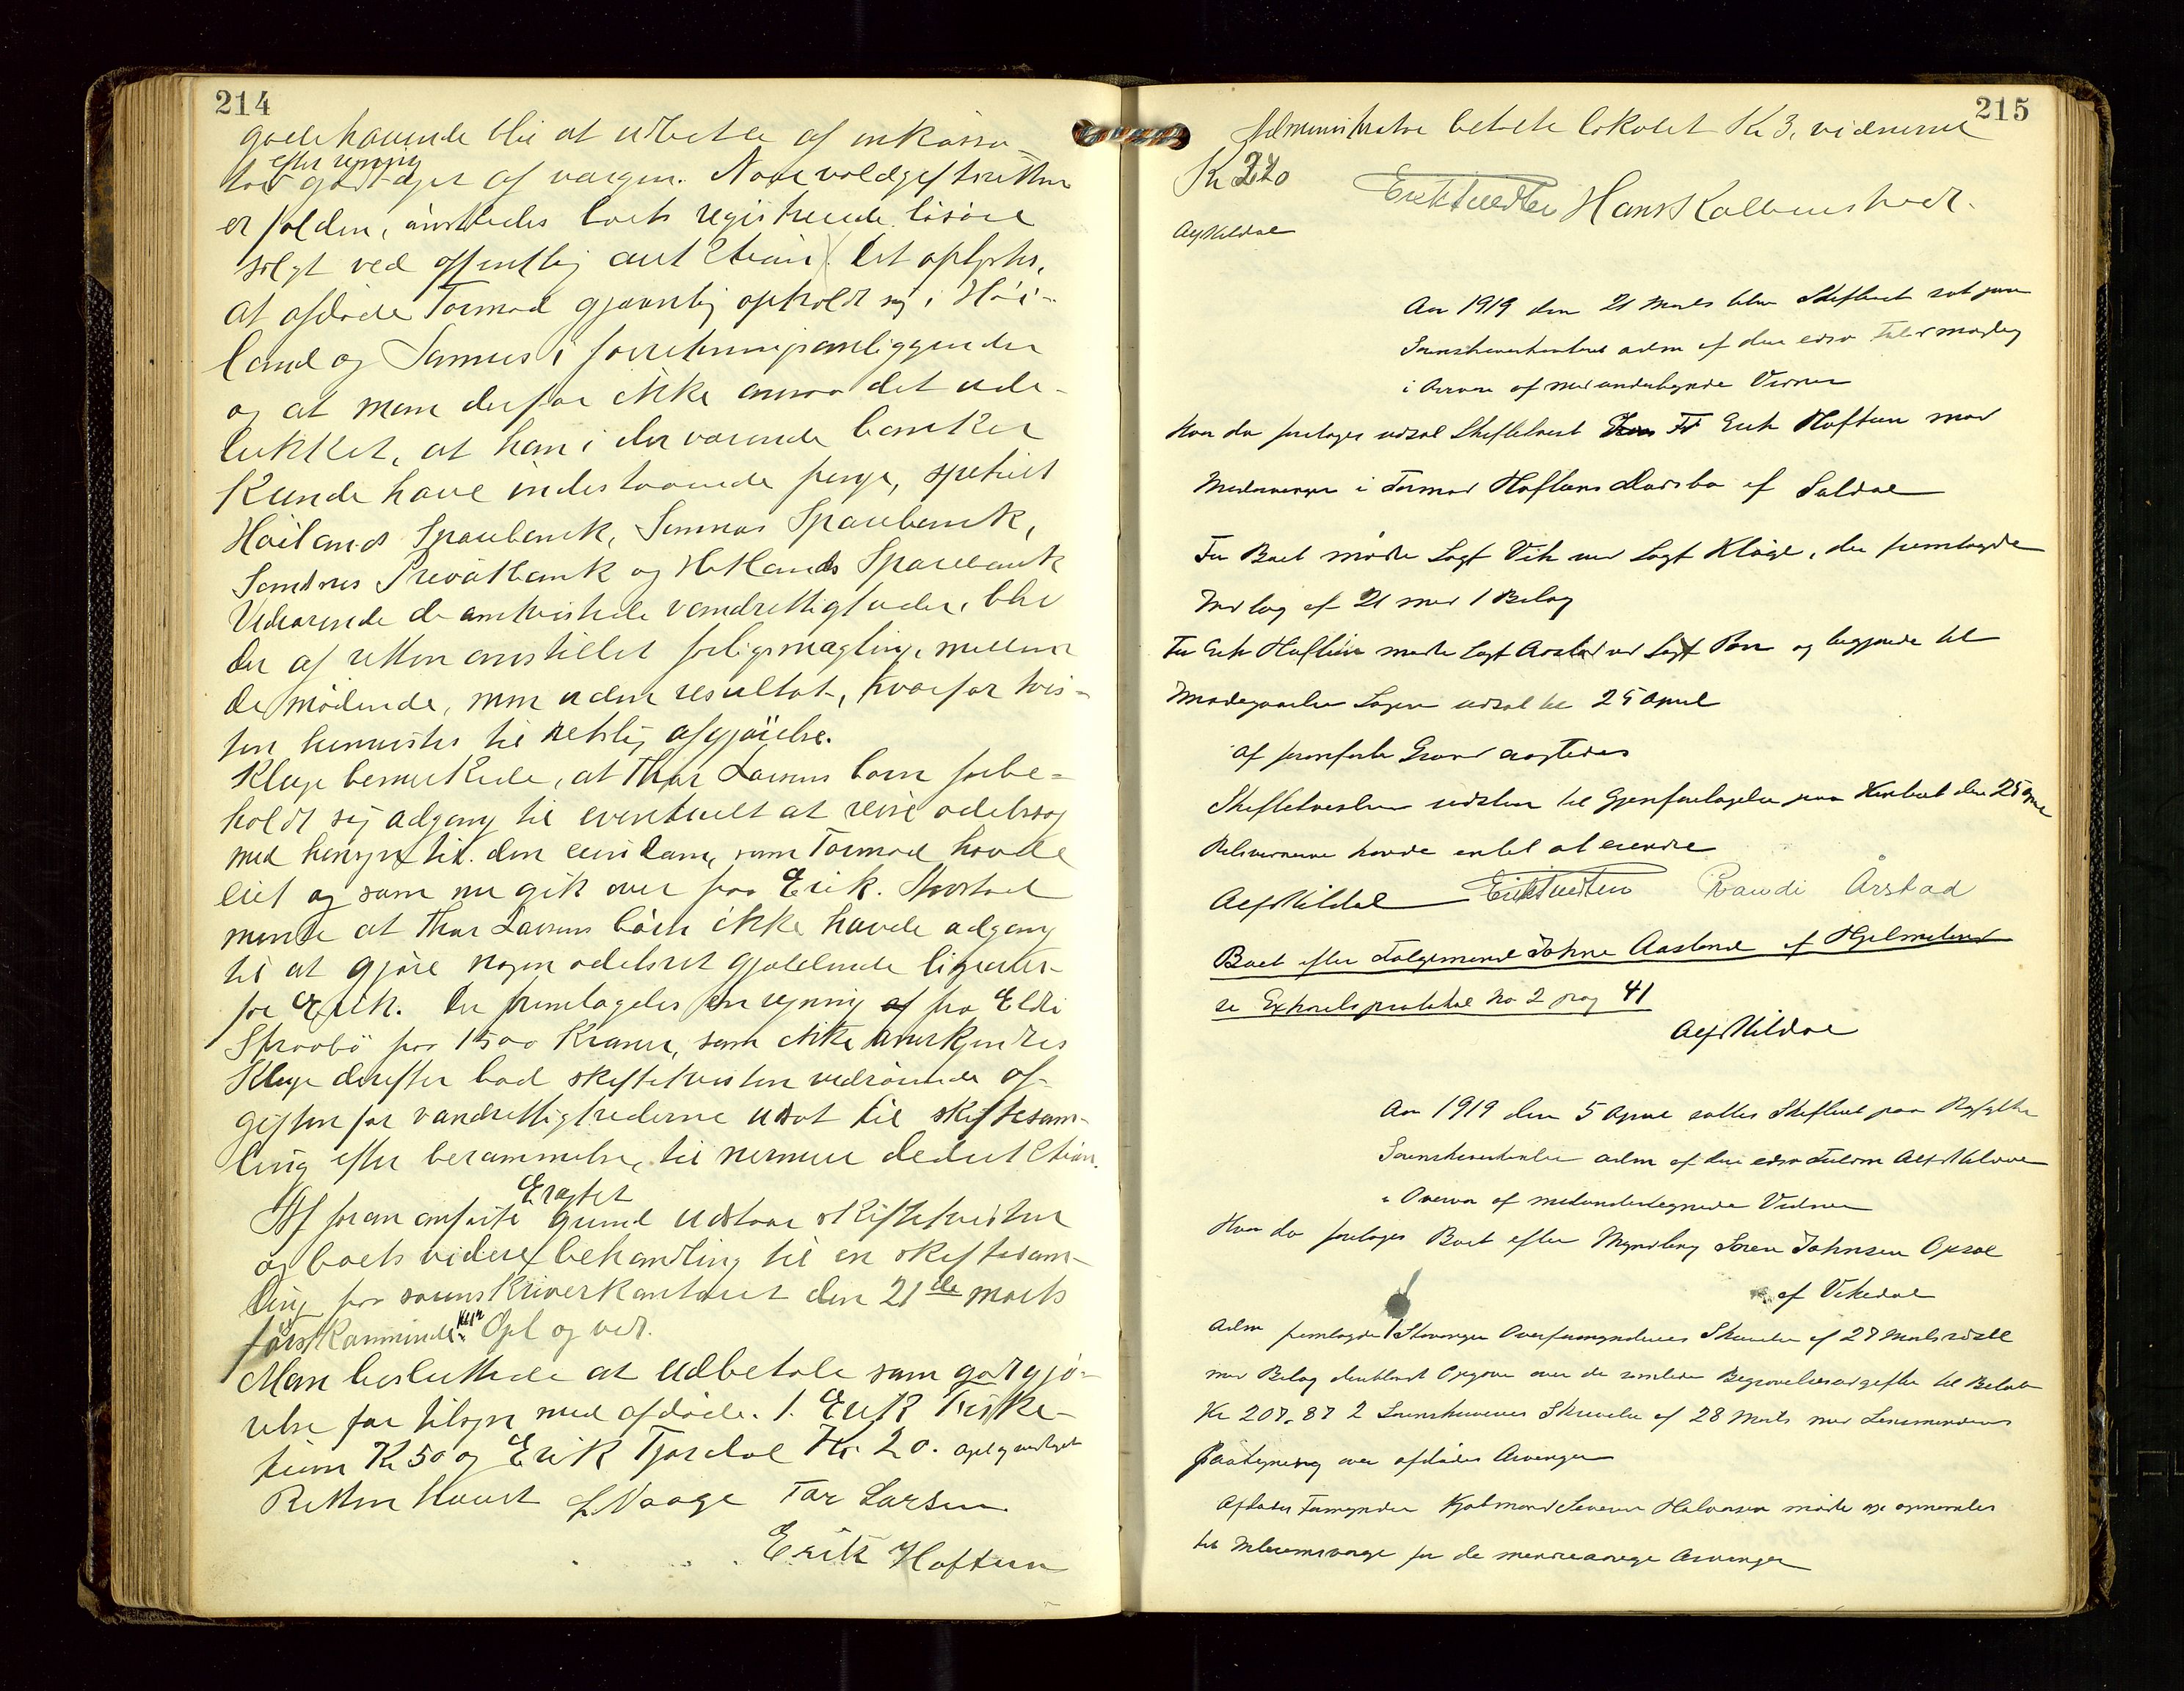 214
godehavende blir at udbetale af inkasso-
efter regning
tor godtages af vargen. Naar voldgiftsretten
er falden, ønskedes boets registrerede løsøre
solgt ved offentlig auktion. Det oplystes,
at afdøde Tormod gjævnlig opholdt sig i Høi-
land og Sannes i forretningsanliggender
og at man derfor ikke ansaa det ude-
lukket, at han i derværende banker
kunde have indestaaende penge, specielt
Høilands Sparebank, Sannes Sparebank,
Sandnes Privatbank og Hetlands Sparebank
Vedrørende de omtvistede vandrettigheder, blev
der af retten anstillet forligsmægling mellem
de mødende, men uden resultat, hvorfor tvis-
ten henvistes til retslig afgjørelse.
Kluge bemerkede, at Thor Larsens børn forbe-
holdt sig adgang til eventuelt at reise odelssag
med hensyn til den eiendom, som Tormod havde
eiet og som nu gik over paa Erik. Aarstad
mente at Thor Larsens børn ikke havde adgang
til at gjøre nogen odelsret gjældende ligeover-
for Erik. Der fremlagdes en regning af fra Eldri
for 1500 Kroner, som ikke anerkjendtes
Kluge derefter bad skiftetvisten vedrørende af-
giften for vandrettighederne udsat til skiftesam-
ling efter berammelse, til nermere deduktion.
Eragtet
Af foran anførte grund udstaar skiftetvisten
og boets videre behandling til en skiftesam-
ling paa sorenskriverkontoret den 21de marts
førstkommende. Opl og ved.
Man besluttede at udbetale som godtgjø-
relse for tilsyn med afdøde. 1. Erik
Kr 50 og Erik Tjordal Kr. 20. opl og vedtaget
Retten hævet Vaage Tor Larsen
Erik Hoftun
215
Administrator betalte lokalet Kr 3, vidnerne
Kr 2.20
Hans Kolbeinstvedt.
Alf Kildal
Aar 1919 den 21 Marts blev Skifteret sat paa
Sorenskriverkontoret adm af den edsv
i Overvær af medundertegnede Vidner
Hvor da foretoges udsat Skiftetvist Erik Hoftun mod
i Tormod Hoftuns Dødsbo af Suldal
For Boet mødte Sagf Vik ved Sagf Kluge, der fremlagde
Indlæg af 21 med 1 Bilag
For Erik Hoftun mødte Sagf Aarstad ved Sagf og begjærede til
Imødegaaelse Sagen udsat til 25 April
Af foranførte Grund eragtedes
Skiftetvisten udstaar til Gjenforetagelse paa den 25 April
Retsvidnerne havde intet at erindre
Alf Kildal Randi Årstad
Boet efter Følgemand Johne Aasland af Hjelmeland
se Extraretsprotokol No 2 pag 41
Alf Kildal
Aar 1919 den 5 April sattes Skifteret paa Ryfylke
Sorenskriverkontor adm af den edsv Fuldm Alf Kildal
i Overvær af medundertegnede Vidner
Hvor da foretoges Boet efter Myndling Søren Johnsen Opsal
af Vikedal
Adm fremlagde 1 Stavanger Overformynderies Skrivelse af 27 Marts
med Bilag Opgave over de samlede Begravelsesudgifter til Beløb
Kr 207.87 2 Sorenskriverens Skrivelse af 28 Marts med Lensmandens
Paategning over afdødes Arvinger
Afdødes Formynder Halvorsen mødte og opnævntes
til for de mindreaarige Arvinger